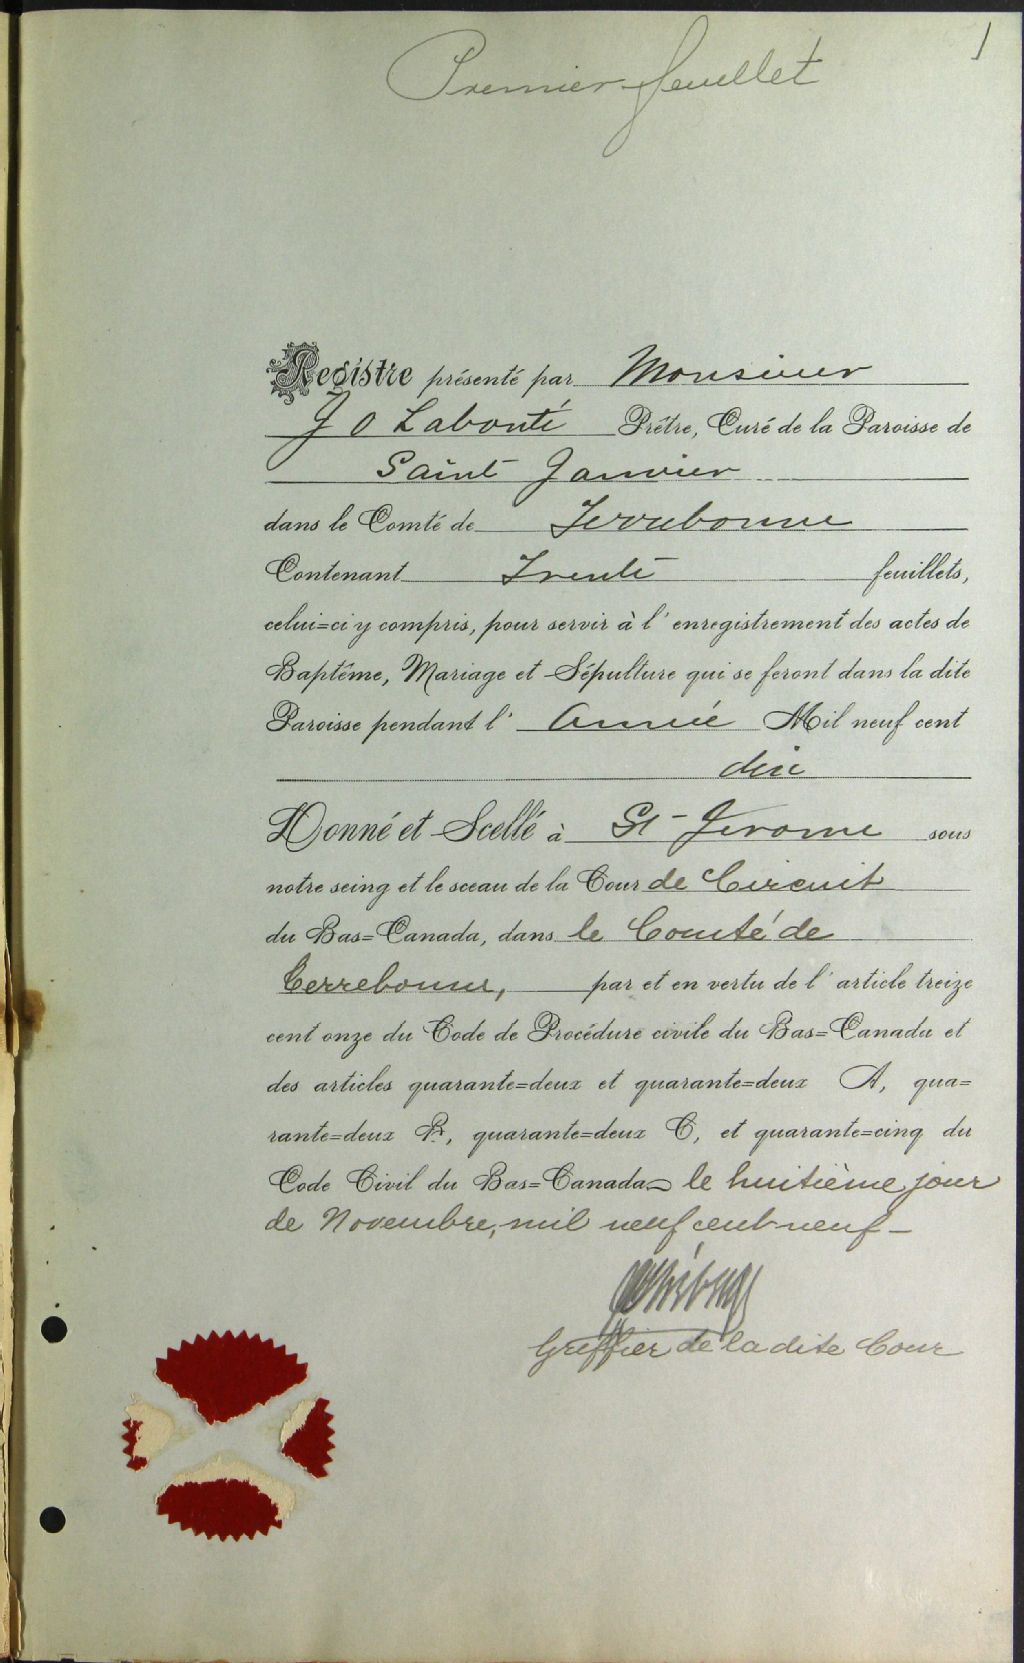 1
Premier feuillet
Registre présenté par Monsieur
J O Labonté Prêtre, Curé de la Paroisse de
Saint Janvier
dans le Comté de Terrebonne
Contenant Trente feuillets,
celui=ci y compris, pour servir à l'enregistrement des actes de
Baptême, Mariage et Sépulture qui se feront dans la dite
Paroisse pendant l'année Mil neuf cent
dix
Donné et Scellé à St-Jerome sous
notre seing et le sceau de la Cour de Circuit
du Bas=Canada, dans le Comté de
Terrebonne, par et en vertu de l'article treize
cent onze du Code de Procédure civile du Bas=Canada et
des articles quarante=deux et quarante=deux A, qua=
rante=deux B, quarante=deux C, et quarante=cinq du
Code Civil du Bas=Canada le huitième jour
de Novembre, mil neuf cent neuf –
Greffier de la dite Cour